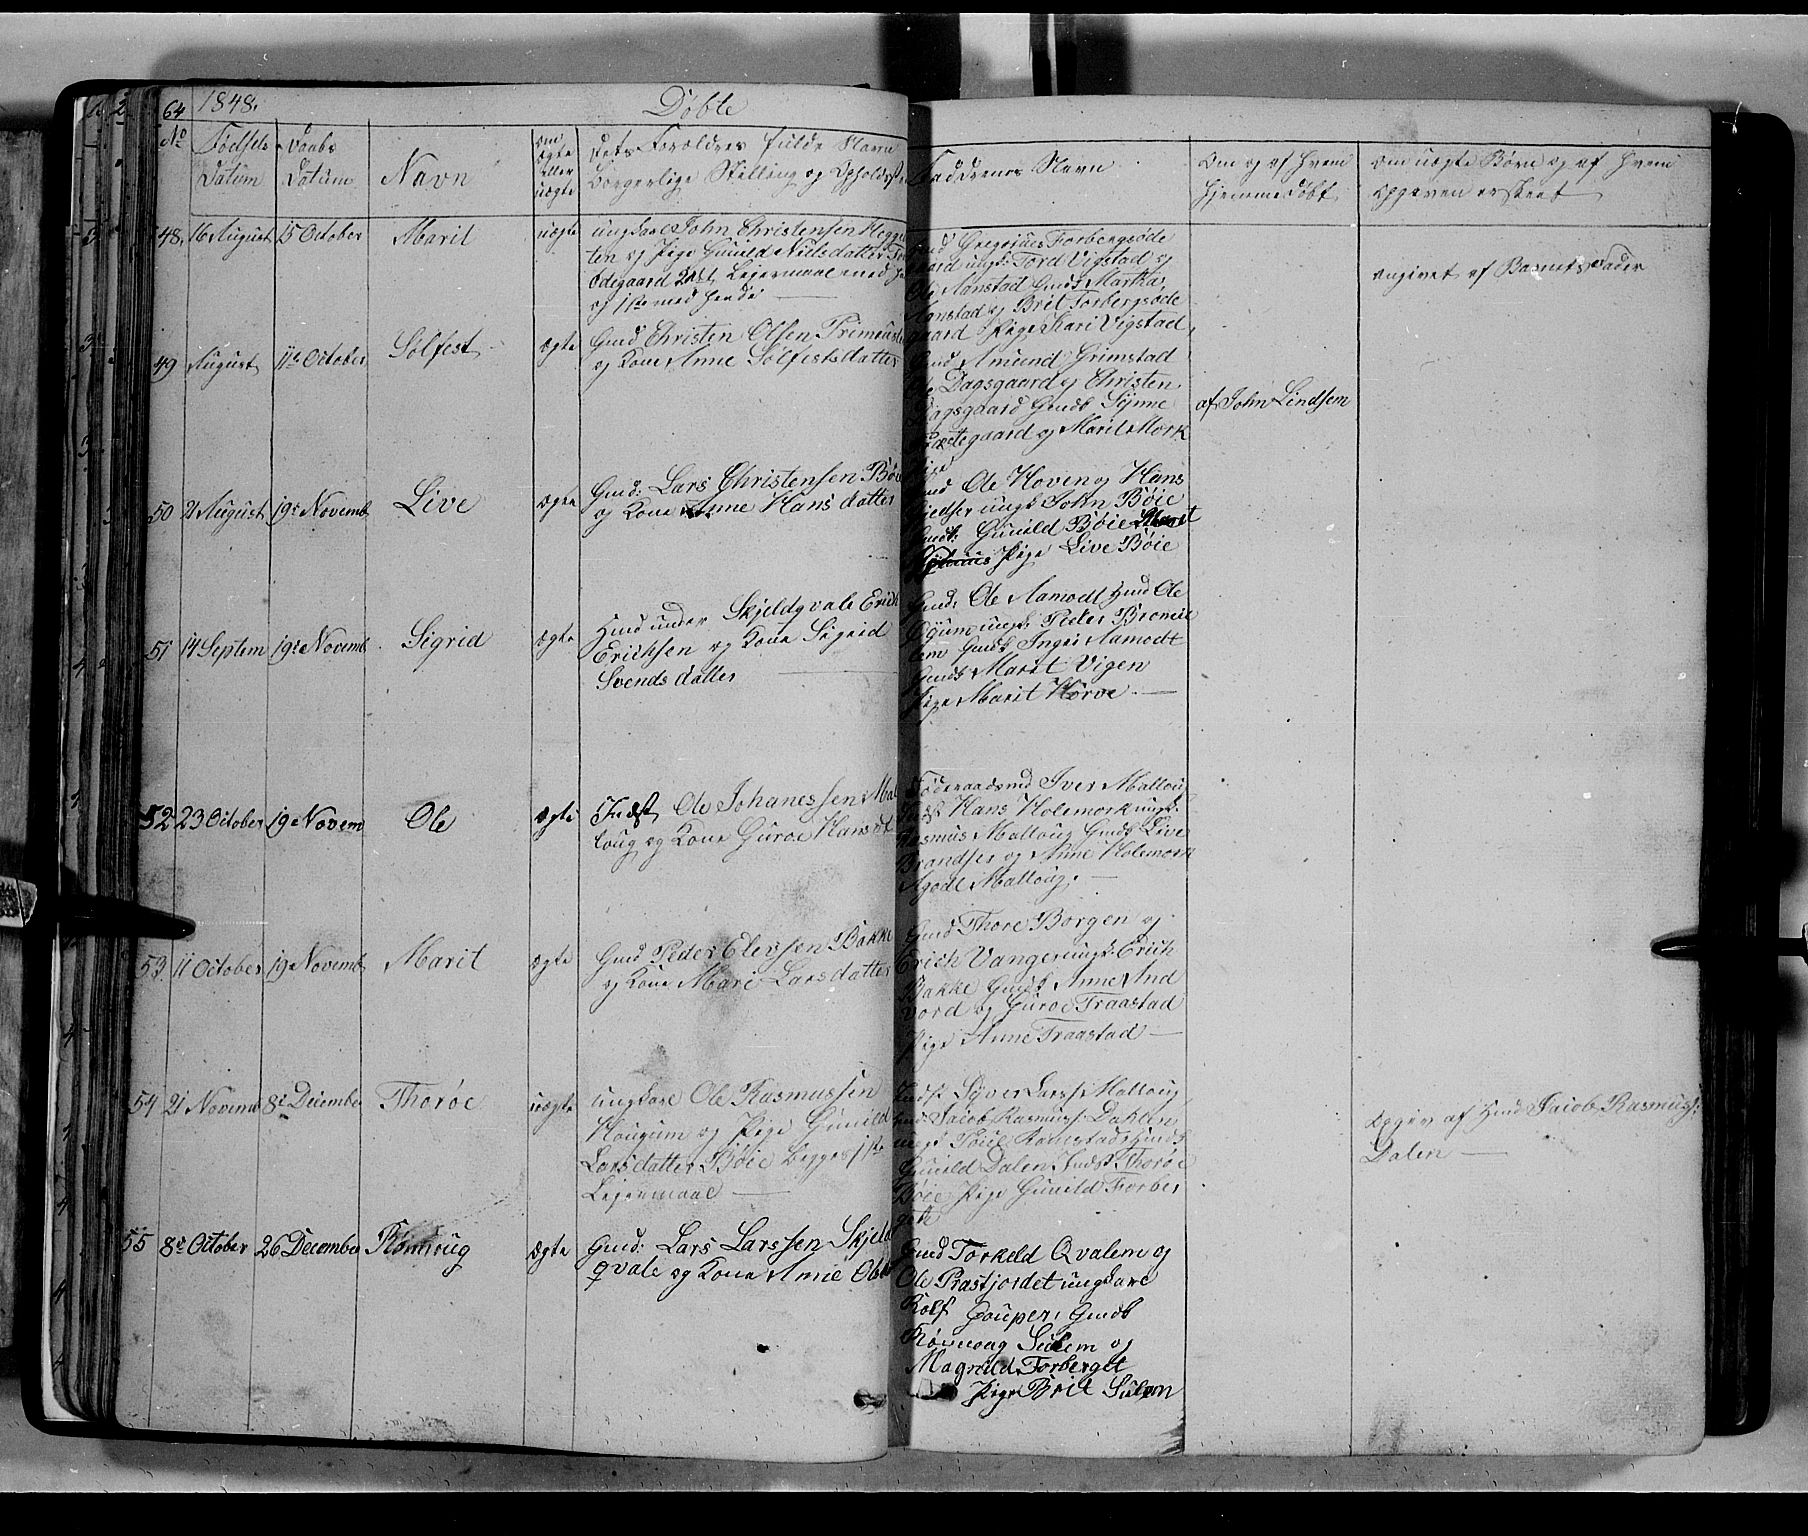 64 1848. Döbte
No Födsels Datum Daabs Datum Navn om ægte eller uægte Dets Forældres fulde Navn Borgerlige Stilling og Opholdsst Faddrenes Navn Om og af hvem hjemmedöbt om uægte Börn og af hvem opgaven er skeet
48. 16 August 15 October Marit uægte ungkarl John Christensen Hegge
ten og Pige Gunild Nielsdatter
Ödegaard 2det Leiermaal med
og 1ste med hende
Gregorius Forbergsöde
gaard ungk: Tord Vigstad og
Ole Aanstad Gmdk Martha
Aanstad og Brit Forbergsöde
gaard Pige Kari Vigstad
angivet af Barnets Fader
49 August 11te October Solfest ægte Gmd Christen Olsen
og Kone Anne Solfestsdatter
Gmd Amund Grimstad
Ole Dagsgaard og Christen
Dagsgaard Gmdk Synne
og Marit Mork
Pige
af John Lindsem
50 21 August 19de Novemb Live ægte Gmd: Lars Christensen Böie
og Kone Anne Hansdatter
Gmd Ole Hoven og Hans
ungk John Böie
Gmdk: Gunild Böie Marit
Pige Live Böie
51 14 Septem 19de Novemb Sigrid ægte Hmd under Skjeldqvale Erich
Erichsen og Kone Sigrid
Svendsdatter
Gmd: Ole Aamodt Hmd Ole
ungk: Peder Bromle
Gmdk Inger Aamodt
Gmdk Marit Vigen
Pige Marit Hörve
52 23 October 19de Novem Ole ægte Indst Ole Johanessen Mal
loug og Kone Guroe Hansdt
Föderaadsmd Iver Malloug
Indst Hans Holemork ungk:
Rasmus Malloug Gmdk Live
Brandser og Anne Holemork
Agodt Malloug.
53 11 October 19de Novemb Marit ægte Gmd Peder Elevsen Bakke
og Kone Mari Larsdatter
Gmd Thore Borgen og
Erich Vange ungk: Erich
Bakke Gmdk Anne And
vord og Guroe Traastad
Pige Anne Traastad
54 21 Novemb 8de December Thoröe uægte ungkarl Ole Rasmussen
Haugum og Pige Gunild
Larsdatter Böie begges 1ste
Leiermaal
Indst Syver Larss: Malloug
Hmd: Jacob Rasmuss: Dahlen
ungk Poul Aanstad Hmdk
Gunild Dalen Indst: Thoröe
Böie Pige Gunild Forber
get
opgiv af Hmd Jacob Rasmuss:
Dalen
55 8de October 26 December Rönnug ægte Gmd: Lars Larssen Skjeld
qvale og Kone Anne Olsd
Gmd Torkeld Qvalem og
Ole Præstjordet ungkarl
Rolf Couper, Gmdk
Rönnoug Sulem og
Magnild Forberget
Pige Brit Sulem